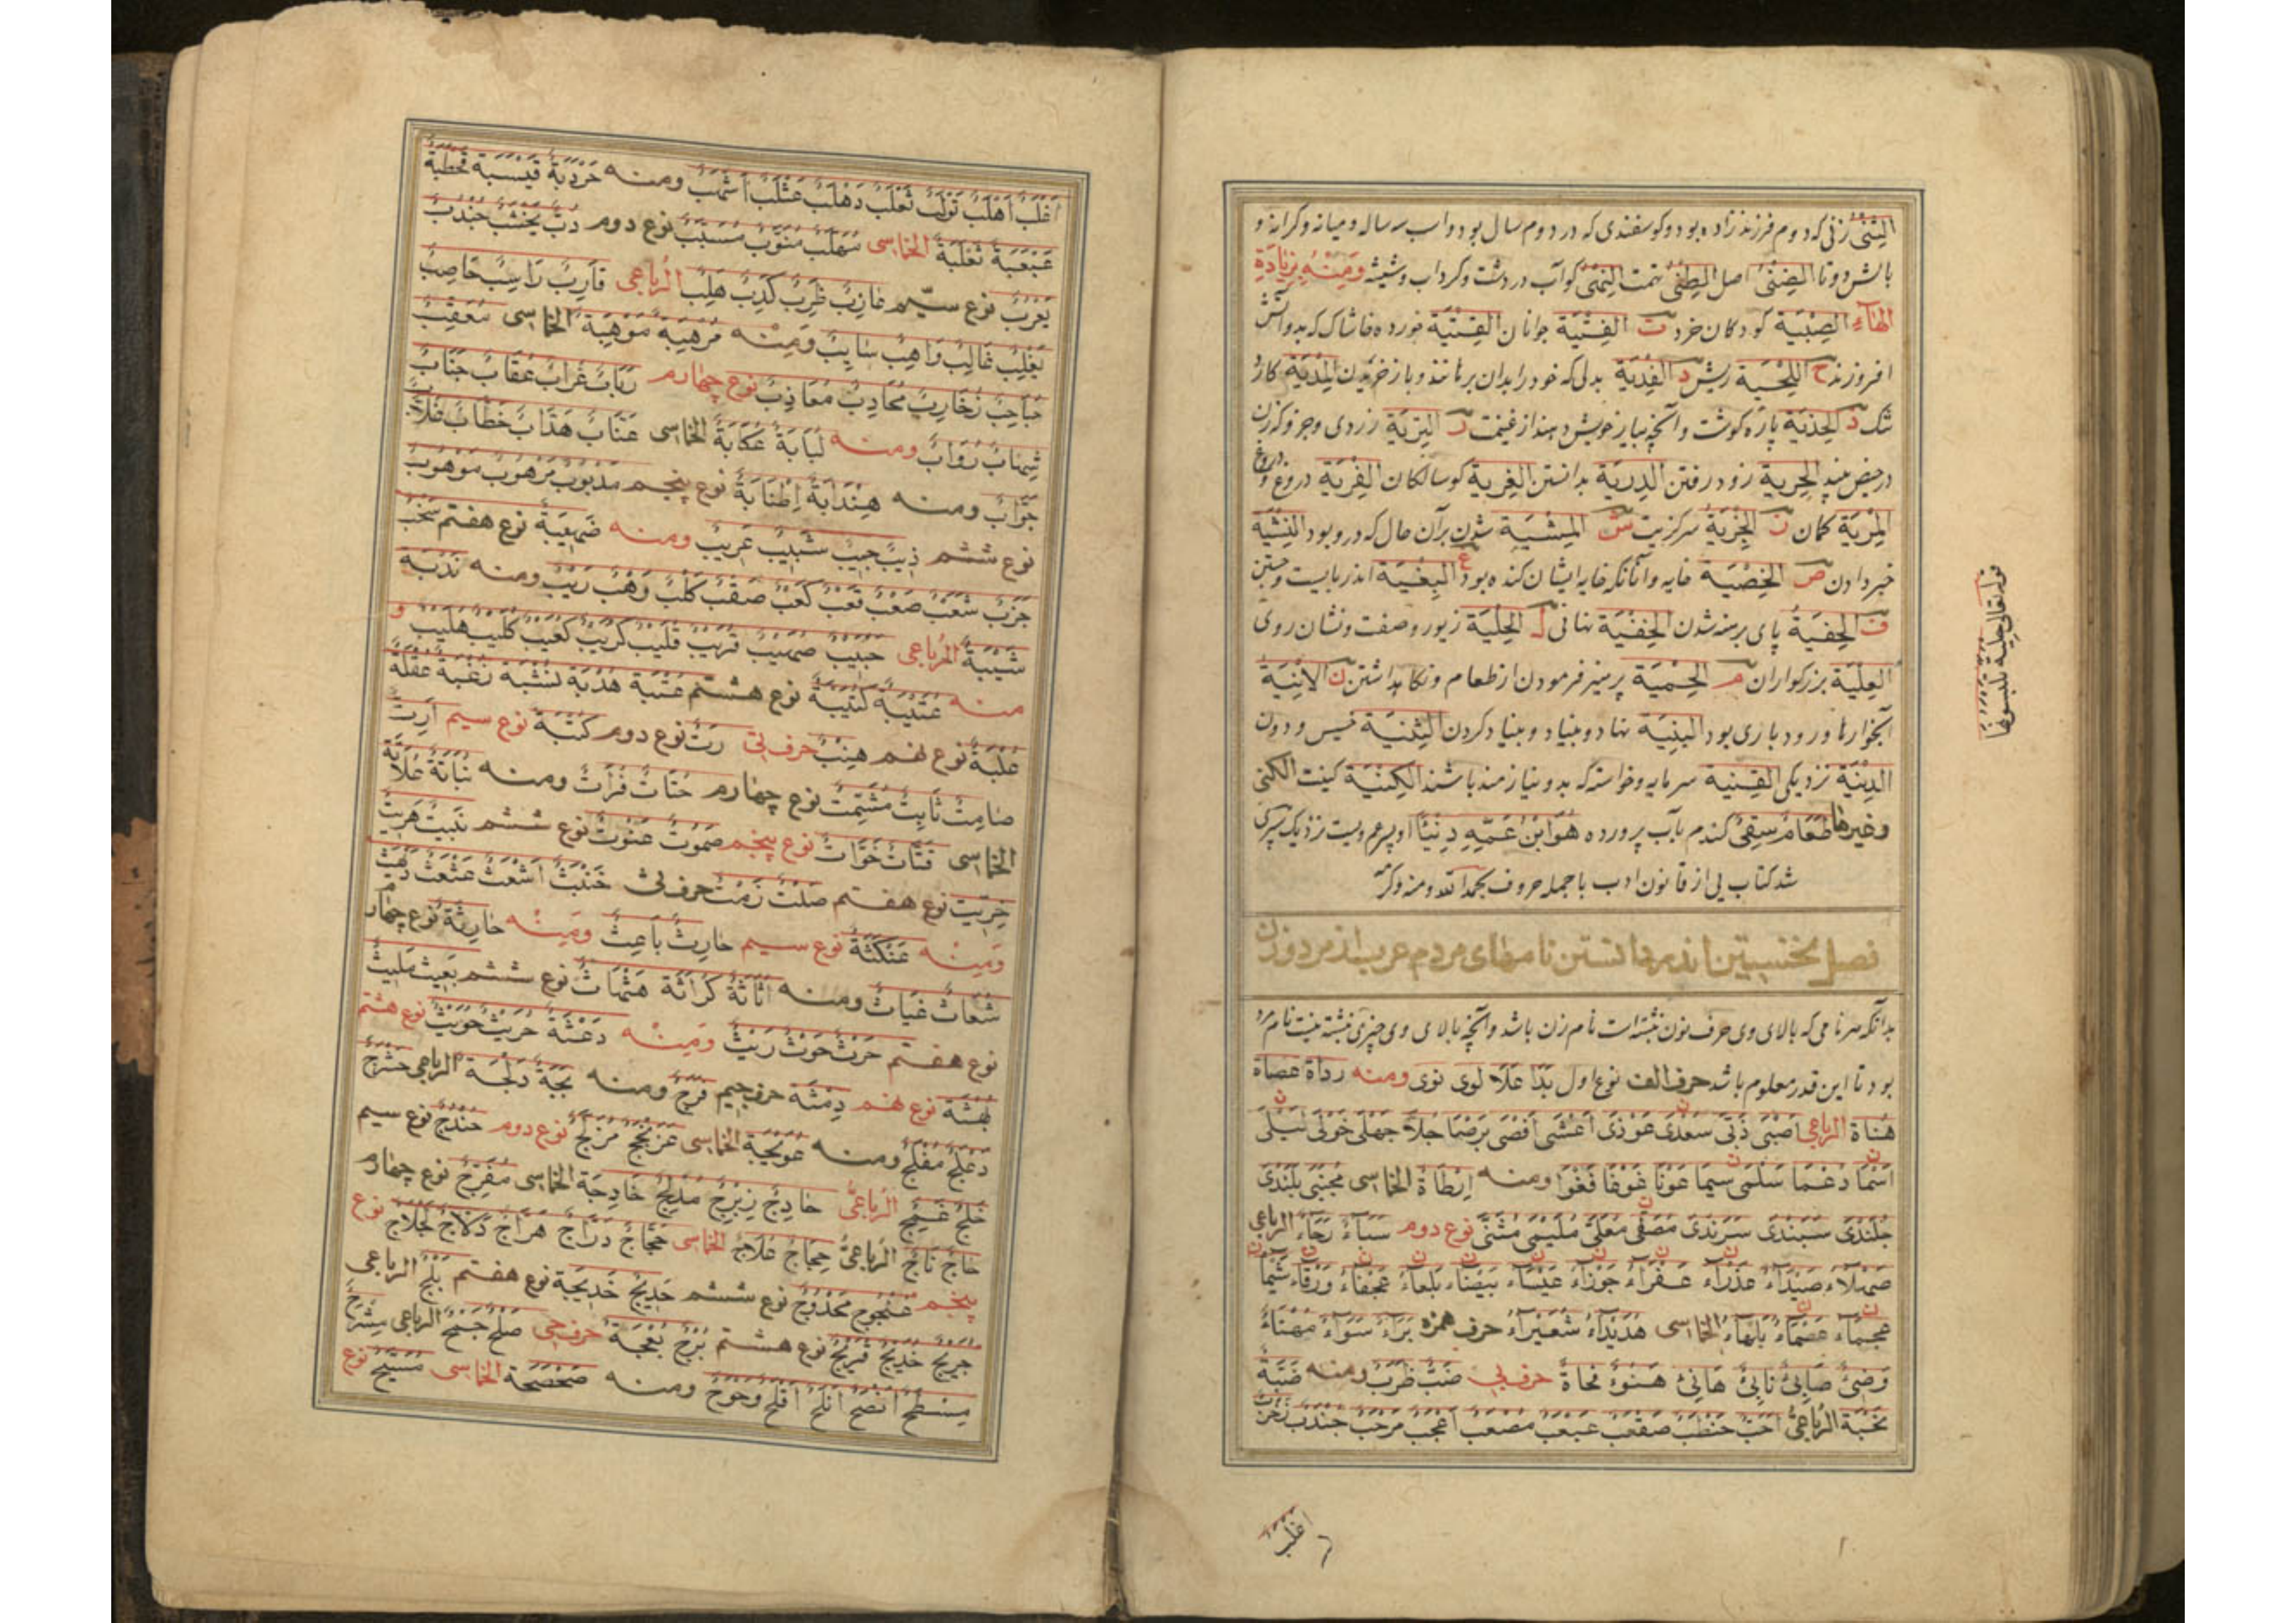 الثِّنْیُ زنی که دوم فرزند زاده بود و کوسفندی که در دوم سال بود و اسب سه ساله و میانه و کرانه و
بالش دوتا الضِّنْیُ اصل الطِّنْیُ تهمت النِّهْیُ کوآب در دشت و کرداب و شیشه وَمِنْهُ بِزِیَادَةِ
الْهَآءِ الصِّبْیَة کودکان خرد ت الفِتْیَة جوانان القِتْیَة خورده خاشاک که بدو آتش
افروزند ح اللِّحْیَة ریش د الفِدْیَة بدلی که خود را بدان برهانند و باز خریدن المِدْیَة کارد
تنک ذ الحِذْیَة پاره کوشت و آنچه بیاز خویش دهند از غنیمت ر التِرْیَة زردی و جز و که زن
در حیض بیند الجِرْیَة زود رفتن الدِرْیَة بدانستن الغِرْیَة کوسالکان الفِرْیَة دروغ
المِرْیَة کمان ز الجِزْیَةُ سرکزیت ش المِشْیَة شدن بر آن حال که در و بود النِشْیَة
خبر دادن ص الخِصْیَة خایه و آنانکه خایه ایشان کنده بود غ البِغْیَة اندر بایست و جستن
ف الحِفْیَةُ پای برهنه شدن الخِفْیَة نهانی ل الحِلْیَة زیور و صفت و نشان روی
العِلْیَة بزرکواران م الحِمْیَة پرهیز فرمودن از طعام و نکاه داشتن ن الآنِیَة
آبخوارها و رود باری بود البِنْیَة نهاد و بنیاد و بنیاد کردن الثِنْیَة خسیس و دون
الدِنْیَة نزدیکی القِنْیة سرمایه و خواسته که بدو نیازمند باشند الکِنْیَة کنیت الکنی
وغیرها طَعَامٌ سِقْیٌ کندم بآب پرورده هُوَ ابْنُ عَمِّهِ دِنْیًا او پسر عم ویست نزدیک
شد کتاب یی از قانون ادب با جمله حروف بحمد الله و منه و کرمه
فصل نخستین اندر دانستن نامهای مردم عرب از مرد و زن
بدانکه هر نامی که بالای وی حرف نون نبشته است نام زن باشد و آنچه بالای وی چیزی نبشته نیست نام مرد
بود تا این قدر معلوم باشد حرف الف نوع اول بَدَا عَلَا لوی نوی ومنه رداة عصاة
هُنَاة الرباعی اصْبَی ذُبَی سُعْدَی عَوْدَی اَعْشَی اَفْصَی بَرْصَا جُلَا جَهْلَی خَوْلَی لَیْلَی
اَسْمَا دَعْمَا سَلْمَی سِیمَا عَوْنَا غَوْفَا فَغْوَا ومنه اِرْطَاة الخماسی مُجْتَبَی بَلَنْدَی
جُلَنْدَی سَبَنْدَی سَرَنْدَی مُصَفَّی مُعَلَّی مُلَیْمَی مُثَنَّی نوع دوم سَنَاءٌ رَجَاءٌ الرباعی
صَهْلَاء صَیْدَاء عَذْرَاء عَفْرَاء جَوْزَاء عَیْسَاء بَیْضَاء بَلْعَاء عَجْفَاء وَرْقَاء شَیْمَا
عَجْمَاء عَصْمَاء بَلْهَاء الخماسی هُدَیْدَاءُ شُعَیْرَاء حرف همزه بَرَاءٌ سَوَاءٌ مُهَنَّاءٌ
وَضِیءٌ صَابِیءٌ نَابِیءٌ هَانِیءٌ هَنُوءٌ نَحَاة حرف بی ضَبٌّ ظَرِبٌ ومنه ضَبَّة
نُخْبَة الرُبَاعِیُّ اَحَبُّ حَنْطَبٌ صَقْعَبٌ عَبْعَبٌ مُصْعَبٌ اَعْجَبُ مَرْحَبٌ جُنْدَبٌ
قوله تعالی حلیة تلبسونها
اغلب
اَغْلَبُ اَهْلَبُ تَوْلَبٌ ثَعْلَبٌ دَهْلَبٌ عَثْلَبٌ اَشْهَبُ ومنه حَرْدَبَةٌ قَیْسَبَة قَحْطَبَةٌ
عَبْعَبَة ثَعْلَبَةٌ الخماسی سَهْلَبٌ مُثَوَّبٌ مُسَیَّبٌ نوع دوم دُبٌّ یَخْشُبُ جُنْدُبٌ
یَعْرُبُ نوع سیّم عَازِبٌ ظَرِبٌ کَذِبٌ هَلِبٌ الرُباعی قَارِبٌ رَاسِبٌ حَاصِبٌ
تَغْلِبُ غَالِبٌ وَاهِبٌ سَایِبٌ وَمِنْه مُرْهِبَةٌ مَوْهِبَةٌ الخماسی مُعَقِّبٌ
حَبَاحِبٌ زُخَارِبٌ مُحَادِبٌ مُعَاذِبٌ نوع چهارم رَبَابٌ غُرَابٌ عُقَابٌ جَنَابٌ
شِهَابٌ رُوَابٌ ومنه لُبَابَةُ عُکَابَةُ الخماسی عَتَّابٌ هَدَّابٌ خَطَّابٌ غَلَّابٌ
جَوَّابٌ ومنه هِنْدَابَةُ اِطْنَابَةُ نوع پنجم مَذْبُوبٌ مَرْهُوبٌ مَوْهُوبٌ
نوع ششم ذِیبٌ حَبِیبٌ شَبِیبٌ عَرِیبٌ ومنه ضَهِیَبَةٌ نوع هفتم سَحْبٌ
حَرْبٌ شَعْبٌ صَعْبٌ قَعْبٌ کَعْبٌ صَقْبٌ کَلْبٌ وَهْبٌ رَیْبٌ ومنه نَدْبَة
شَیْبَةٌ الرباعی حُبَیْبٌ صُهَیْبٌ قُرَیْبٌ قُلَیْبٌ کُرَیْبٌ کُعَیْبٌ کُلَیْبٌ هُلَیْبٌ و
منه عُتَیْبَةٌ کُتَیْبَةٌ نوع هشتم عُتْبَة هُدْبَة نُشْبَة زُغْبَة عُقْلَة
عُلْبَةٌ نوع نهم هِنْبٌ حرف تی رَتٌّ نوع دوم کُتْبَة نوع سیم اَرِتٌ
صَامِتٌ ثَابِتٌ مُشَمِّتٌ نوع چهارم حُتَاتٌ فُرَاتٌ ومنه نُبَاتَةُ عُلَاثَةُ
الخماسی قَتَّاتٌ خَوَّاتٌ نوع پنجم صَمُوتٌ عَنُوتٌ نوع ششم نَبِیتٌ هَرِیتٌ
خِرِّیتٌ نوع هفتم صَلْتٌ زَمْتٌ حرف ثی خَنْبَثٌ اَشْعَثُ عَثْعَثٌ دَلْهَثٌ
وَمِنْه عَنْکَثَةُ نوع سیم حَارِثٌ بَاعِثٌ وَمِنْه حَارِثَةُ نوع چهارم
شَعَّاثٌ غِیَاثٌ ومنه اُثَاثَةُ کُرَاثَة هَثْهَاثٌ نوع ششم بَعِیثٌ مَلِیثٌ
نوع هفتم حَرْثٌ حَوْثٌ رَیْثٌ وَمِنْه دَعْثَةُ حُرَیْثٌ حُوَیْثٌ نوع هشتم
بُهْثَة نوع نهم دِمْثَة حرف جیم فَرَجٌ ومنه بَجَّةٌ دَلَجَة الرباعی حَشْرَجٌ
دَعْلَجٌ مُفْلَجٌ ومنه عَوْبَجَة الخماسی عَرْنَجَجٌ مُزَلَّجٌ نوع دوم حُنْدُجٌ نوع سیم
خَلِجٌ عَمِجٌ الرُباعیُّ حَادِجٌ زِبْرِجٌ مُدْلِجٌ خَادِجَة الخماسی مُفَرِّجٌ نوع چهارم
حَاجٌ نَاجٌ الرُباعیُّ حِجَاجٌ عَلَاجٌ الخماسی حَجَّاجٌ دَرَّاجٌ هَرَّاجٌ دَلَّاجٌ لَجْلَاجٌ نوع
پنجم عُنْجُوجٌ مَحْدُوجٌ نوع ششم حَدِیجٌ خَدِیجَة نوع هفتم بَلْجٌ الرباعی
جُرَیْجٌ خُدَیْجٌ فُرَیْجٌ نوع هشتم بُرْجٌ بُعْجَة حرف حی صَلْحٌ جَنَحٌ الرباعی سَرْحٌ
مِسْطَحٌ اَنْضَحُ اَفْلَحُ اَقْلَحُ وَحْوَحٌ ومنه صَحْصَحَة الخماسی مُسَبَّحٌ نوع